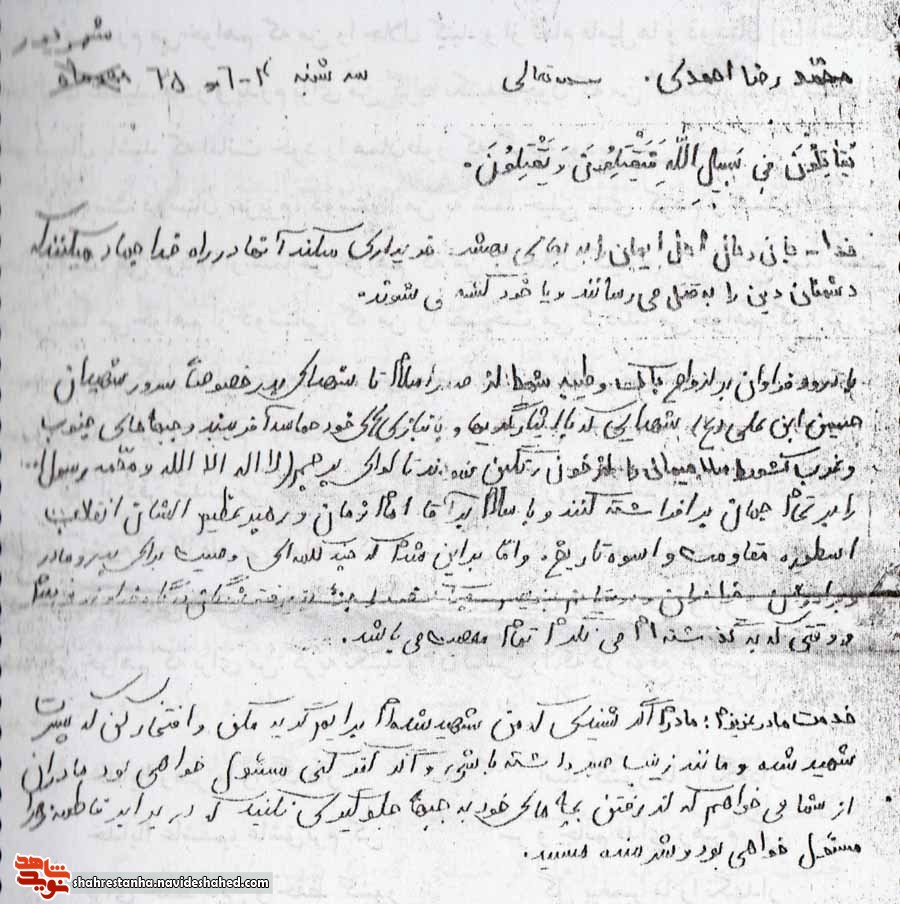 شهریور
محمد رضا احمدی. بسمه تعالی سه شنبه ۴-۶-۶۵
یُقاتِلُونَ فِی سَبیلِ اللهِ فَیَقتُلُونَ وَ یُقتَلُونَ.
خدا جان و مال اهل ایمان را به بهای بهشت خریداری میکند آنها در راه خدا جهاد میکنند که
دشمنان دین را به قتل می رسانند و یا خود کشته می شوند.
با درود فراوان بر ارواح پاک و طیبه شهدا از صدر اسلام تا شهدای بدر خصوصاً سرور شهیدان
حسین ابن علی (ع) شهدایی که با ایثارگریها و جانبازی های خود حماسه آفریدند و جبهه های جنوب
و غرب کشور اسلامیمان را از خون رنگین نمودند تا لوای پرچم (لا اله الا الله و محمد رسول ...
را بر تمام جهان بر افراشته کنند و با سلام بر آقا امام زمان و رهبر عظیم الشان انقلاب
اسطوره مقاومت و اسوه تاریخ. و اما بر این شدم که چند کلمه ای وصیت برای پدر و مادر
و برادران و خواهران و دوستانم
و وقتی که به گذشته ام می نگرم تمام معصیت می باشد.
خدمت مادر عزیزم: مادرم اگر شنیدی که من شهید شده ام برایم گریه مکن و افتخار کن که پسرت
شهید شده و مانند زینب صبر داشته باشی و اگر گریه کنی مسئول خواهی بود مادران
از شما می خواهم که از رفتن بچه های خود به جبهه جلوگیری نکنید که در برابر فاطمه زهرا
مسئول خواهی بود و شرمنده هستید.
نوید شاهد
shahrestanha.navideshahed.com